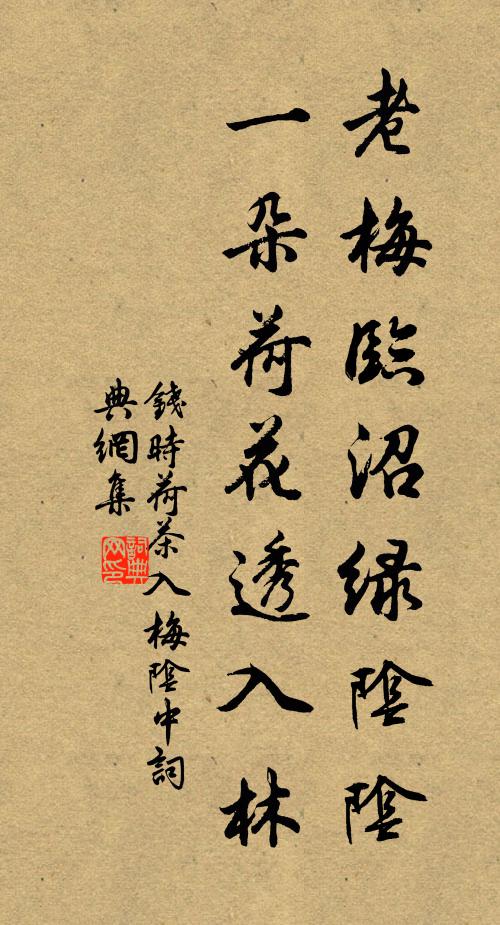 老梅臨沼綠陰陰
一朵荷花透入林
錢時荷茶入梅陰中詞
典網集
詞典
网印